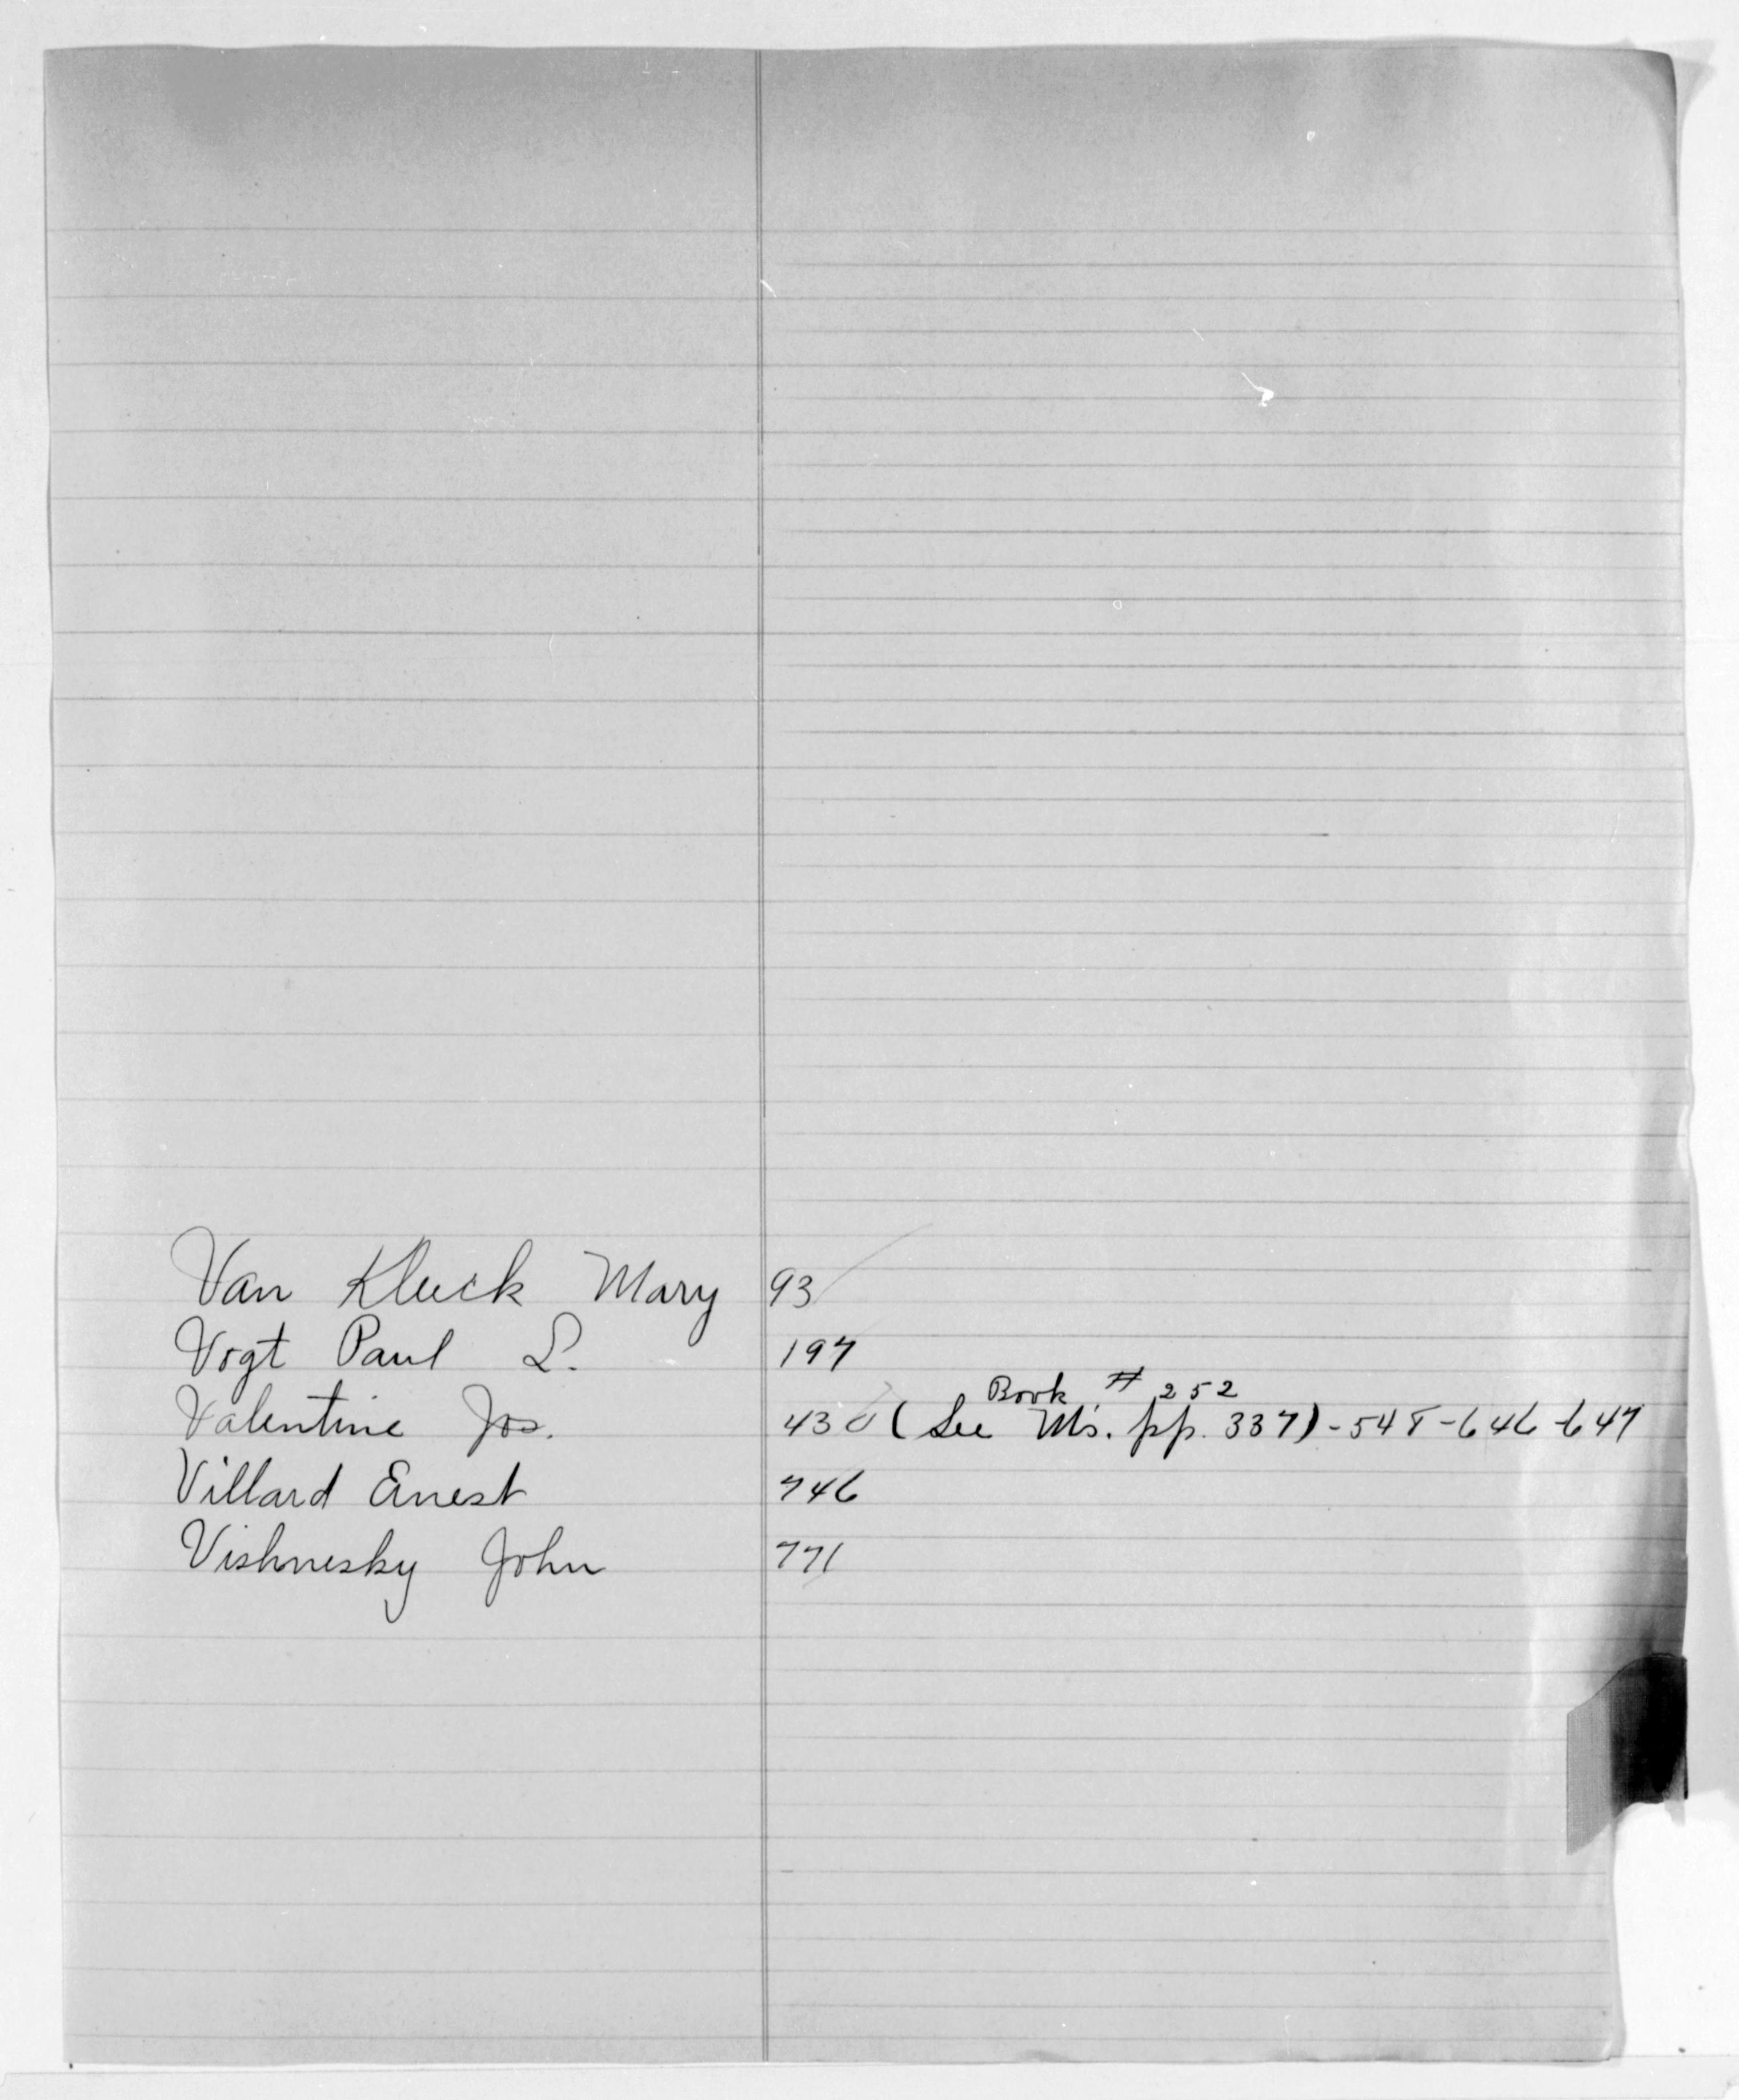 Van Kluck Mary 93
Vogt Paul L. 197
Book # 252
Valentine Jos. 430 (See M's. pp. 337) - 548 - 646 - 647
Villard Ernest 746
Vishnesky John 771